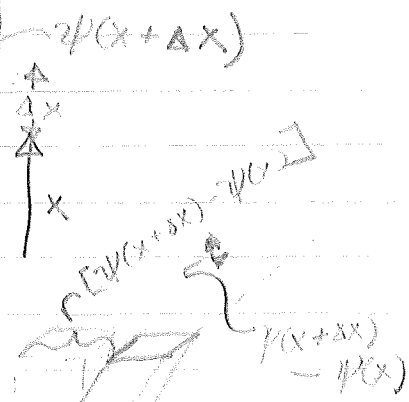 ψ(x + Δx)
Δx
x
[ψ(x+Δx) - ψ(x)]
ψ(x+Δx)
- ψ(x)